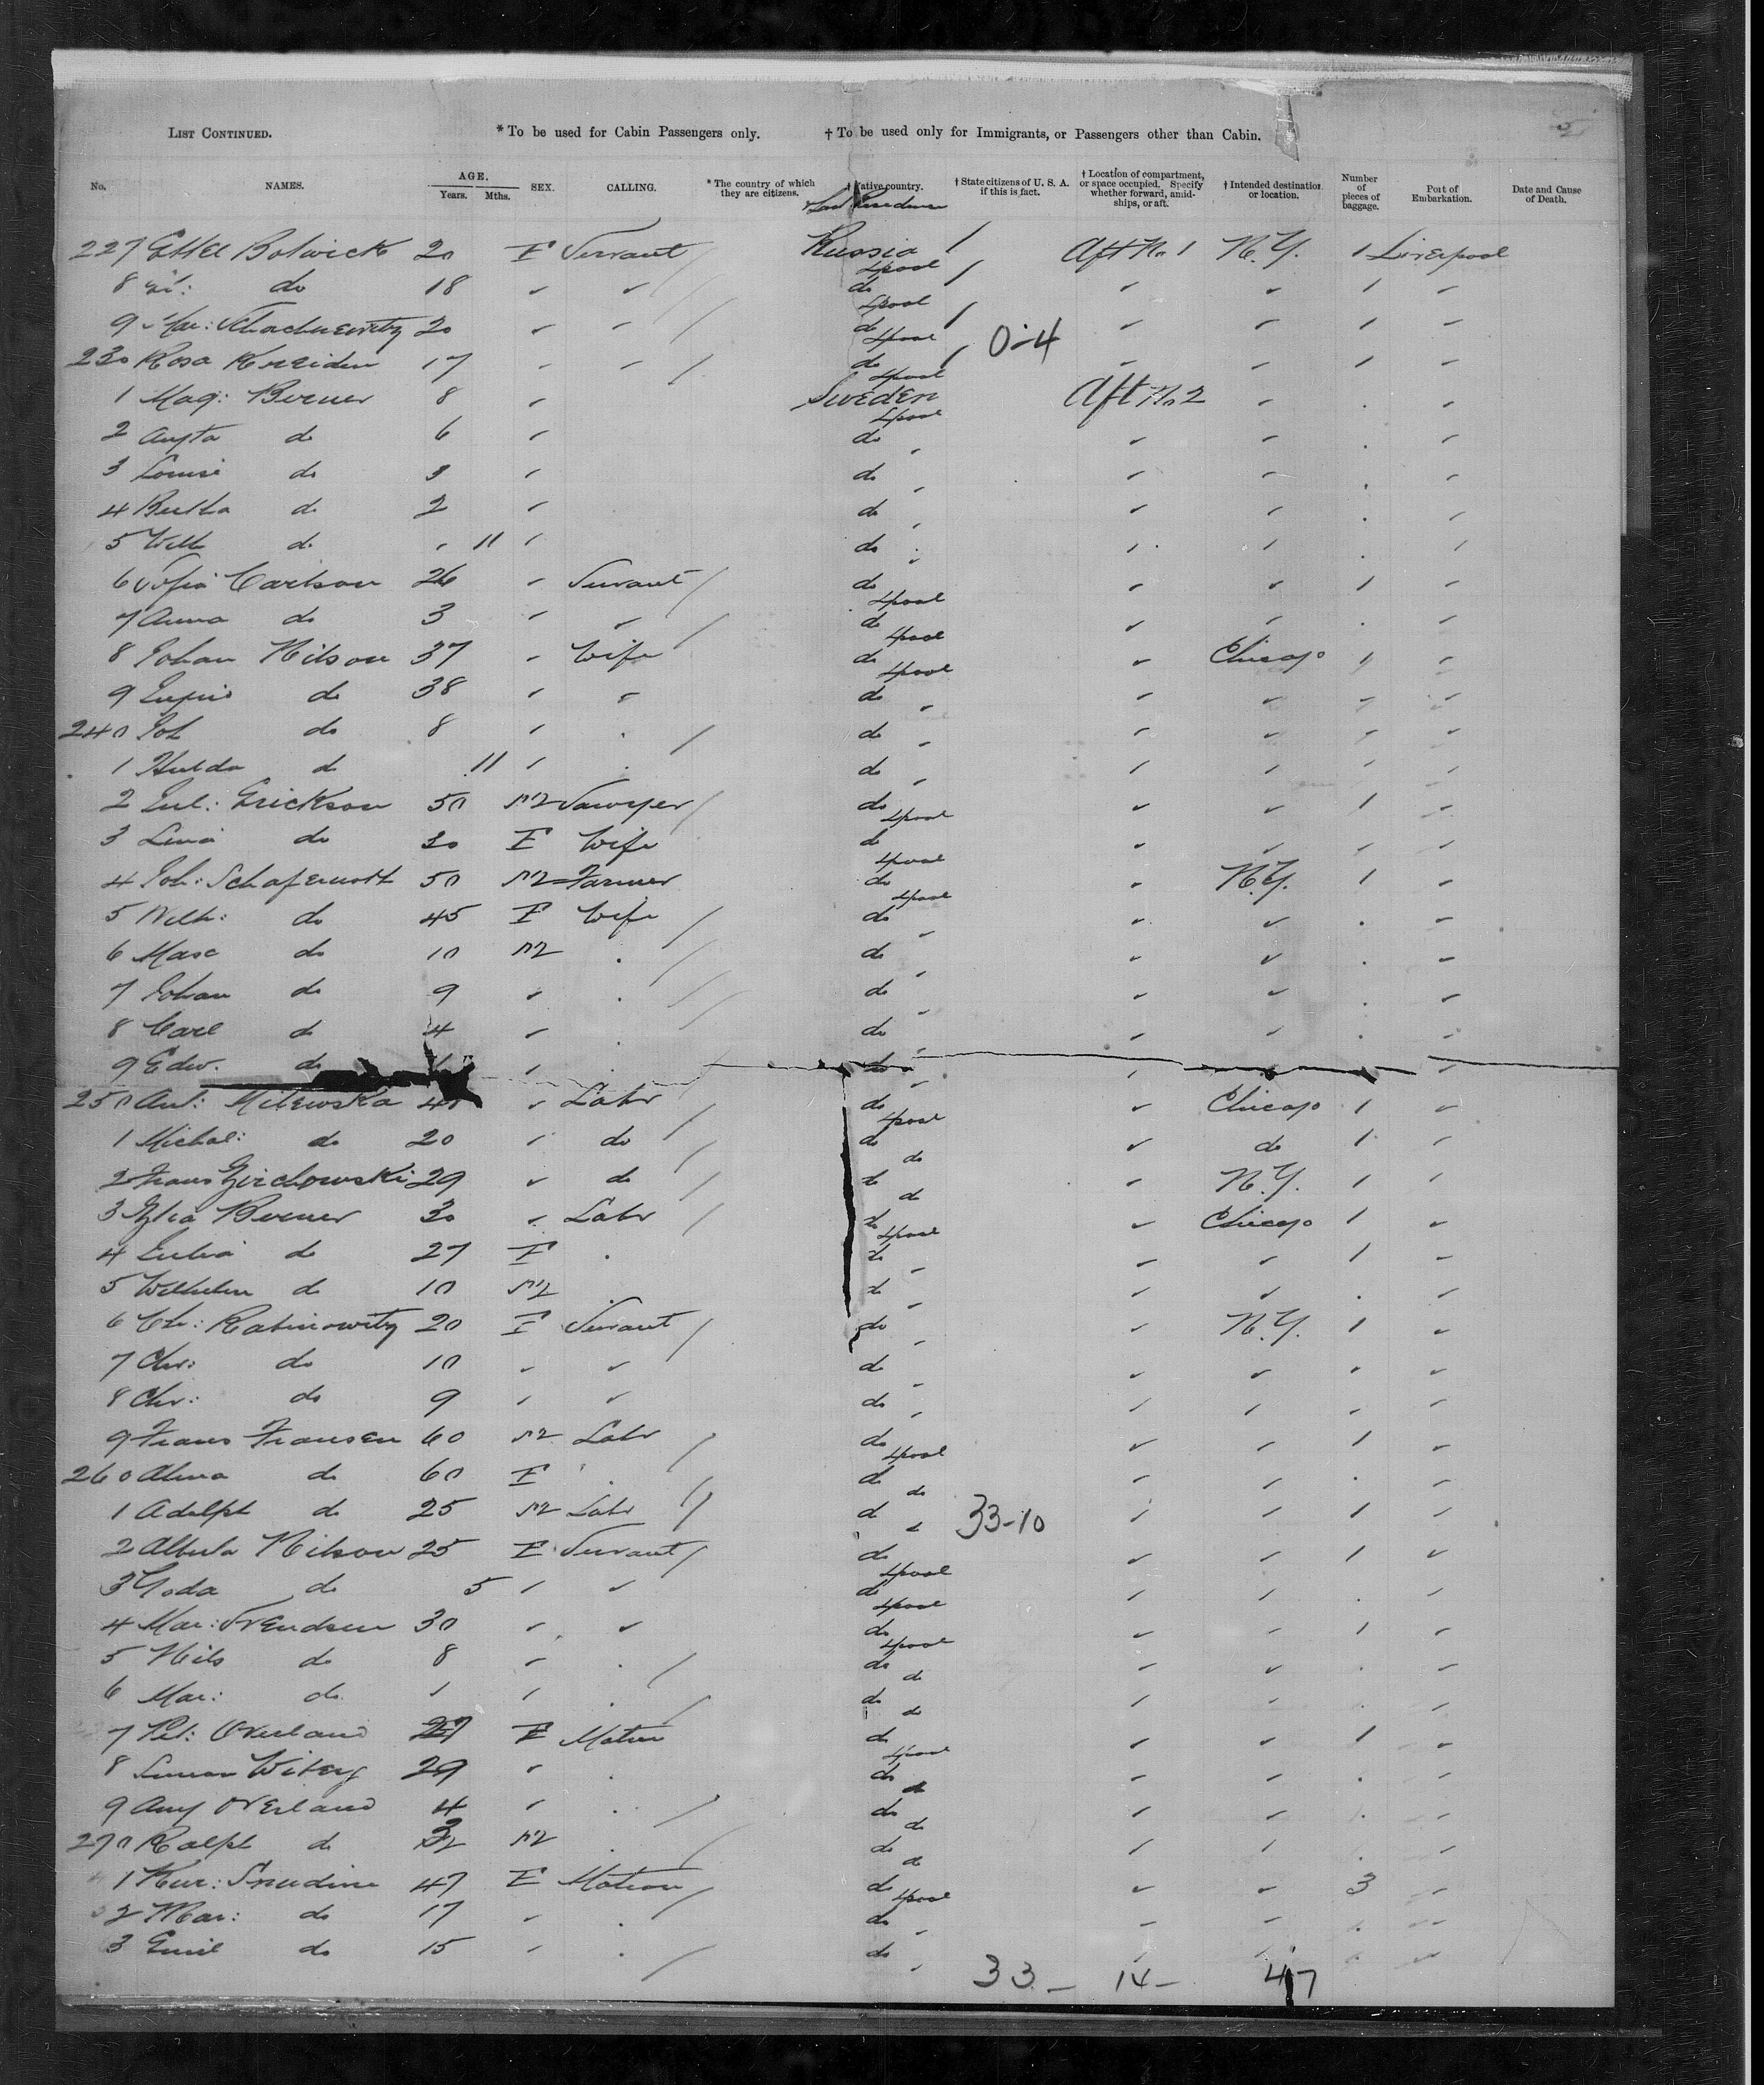 List Continued. * To be used for Cabin Passengers only. † To be used only for Immigrants, or Passengers other than Cabin.
No. NAMES. AGE. Years. Mths. SEX. CALLING. * The country of which they are citizens. † Native country. † State citizens of U. S. A. if this is fact. † Location of compartment, or space occupied. Specify whether forward, amidships, or aft. † Intended destination or location. Number of pieces of baggage. Port of Embarkation. Date and Cause of Death.
Last Residence
227 Ettel Botwick 20 F Servant / Russia Lpool / Aft No 1 N.Y. 1 Liverpool
8 do 18 ✓ ✓ do Lpool / ✓ ✓ 1 ✓
9 Mar: 20 ✓ ✓ / do Lpool / ✓ ✓ 1 ✓
0-4
230 Rosa 17 ✓ ✓ / do Lpool / ✓ ✓ 1 ✓
1 Mag: Berner 8 ✓ Sweden Lpool Aft No 2 ✓ . ✓
2 Augta do 6 ✓ do " ✓ ✓ . ✓
3 Louise do 3 ✓ do " ✓ ✓ . ✓
4 Bertha do 2 ✓ do " ✓ ✓ . ✓
5 Wilh do 11 ✓ do " ✓ ✓ . ✓
6 Sofia Carlson 26 ✓ Servant / do Lpool ✓ ✓ 1 ✓
7 Anna do 3 ✓ ✓ / do Lpool ✓ ✓ . ✓
8 Johan Nilson 37 ✓ Wife do Lpool ✓ Chicago 1 ✓
9 do 38 ✓ ✓ do " ✓ ✓ ✓ ✓
240 Joh do 8 ✓ . / do " ✓ ✓ ✓ ✓
1 Hulda do 11 ✓ . do " ✓ ✓ ✓ ✓
2 Jul: Erickson 50 M Sawyer / do Lpool ✓ ✓ 1 ✓
3 Lina do 20 F Wife do Lpool ✓ ✓ ✓ ✓
4 Joh: 50 M Farmer do Lpool ✓ N.Y. 1 ✓
5 Wilh: do 45 F Wife / do " ✓ ✓ . ✓
6 Masc do 10 M . / do " ✓ ✓ . ✓
7 Johan do 9 ✓ . / do " ✓ ✓ . ✓
8 Carl do 4 ✓ . do " ✓ ✓ . ✓
9 Edw. do ✓ . do " ✓ ✓
250 Ant: Milewska ✓ Labr / do Lpool ✓ Chicago 1 ✓
1 Michal: do 20 ✓ do / do do ✓ do 1 ✓
2 Frans 29 ✓ do / do do ✓ N.Y. 1 ✓
3 Berner 30 ✓ Labr / do Lpool ✓ Chicago 1 ✓
4 Julia do 27 F . do " ✓ ✓ 1 ✓
5 Wilhelm do 10 M . do " ✓ ✓ . ✓
6 Ch: Rabinowitz 20 F Servant / do " ✓ N.Y. 1 ✓
7 Chr: do 10 ✓ ✓ do " ✓ ✓ ✓ ✓
8 Chr: do 9 ✓ ✓ do " ✓ ✓ ✓ ✓
9 Frans Fransen 60 M Labr / do Lpool ✓ ✓ 1 ✓
260 Alma do 60 F . / do do ✓ ✓ . ✓
1 Adolph do 25 M Labr / do do 33-10 ✓ ✓ 1 ✓
2 Nilson 25 F Servant / do Lpool ✓ ✓ 1 ✓
3 do 5 ✓ ✓ do Lpool ✓ ✓ . ✓
4 Mar: Svendsen 30 ✓ ✓ do Lpool ✓ ✓ 1 ✓
5 Nils do 8 ✓ . / do do ✓ ✓ . ✓
6 Mar: do 1 ✓ . / do do ✓ ✓ . ✓
7 Pet: Overland 27 F Matron do Lpool ✓ ✓ 1 ✓
8 29 ✓ . do do ✓ ✓ . ✓
9 Amy Overland 4 ✓ . / do do ✓ ✓ . ✓
270 Ralph do M . / do do ✓ ✓ . ✓
1 47 F Matron / do Lpool ✓ ✓ 3 ✓
2 Mar: do 17 ✓ . / do " ✓ ✓ . ✓
3 Emil do 15 ✓ . / do " ✓ ✓ . ✓
33 - 14 - 47